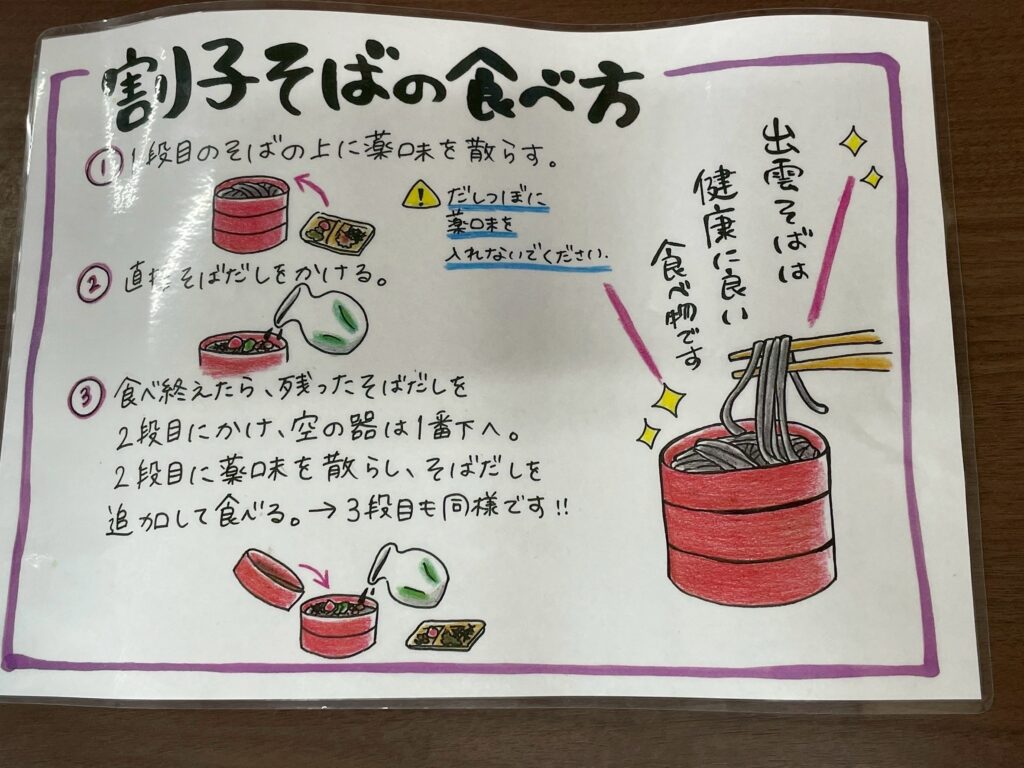 割子そばの食べ方
① 1段目のそばの上に薬味を散らす。
だしつぼに
薬味を
入れないでください.
② 直接そばだしをかける。
③ 食べ終えたら、残ったそばだしを
2段目にかけ、空の器は1番下へ。
2段目に薬味を散らし、そばだしを
追加して食べる。→3段目も同様です!!
出雲そばは
健康に良い
食べ物です